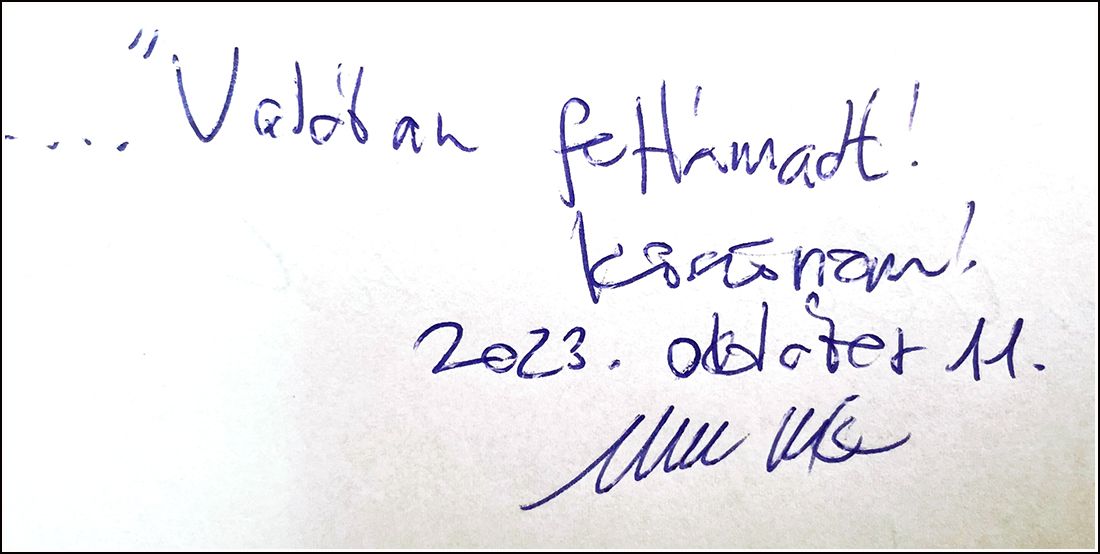 ...."Valóban feltámadt!
köszönöm!
2023. október 11.